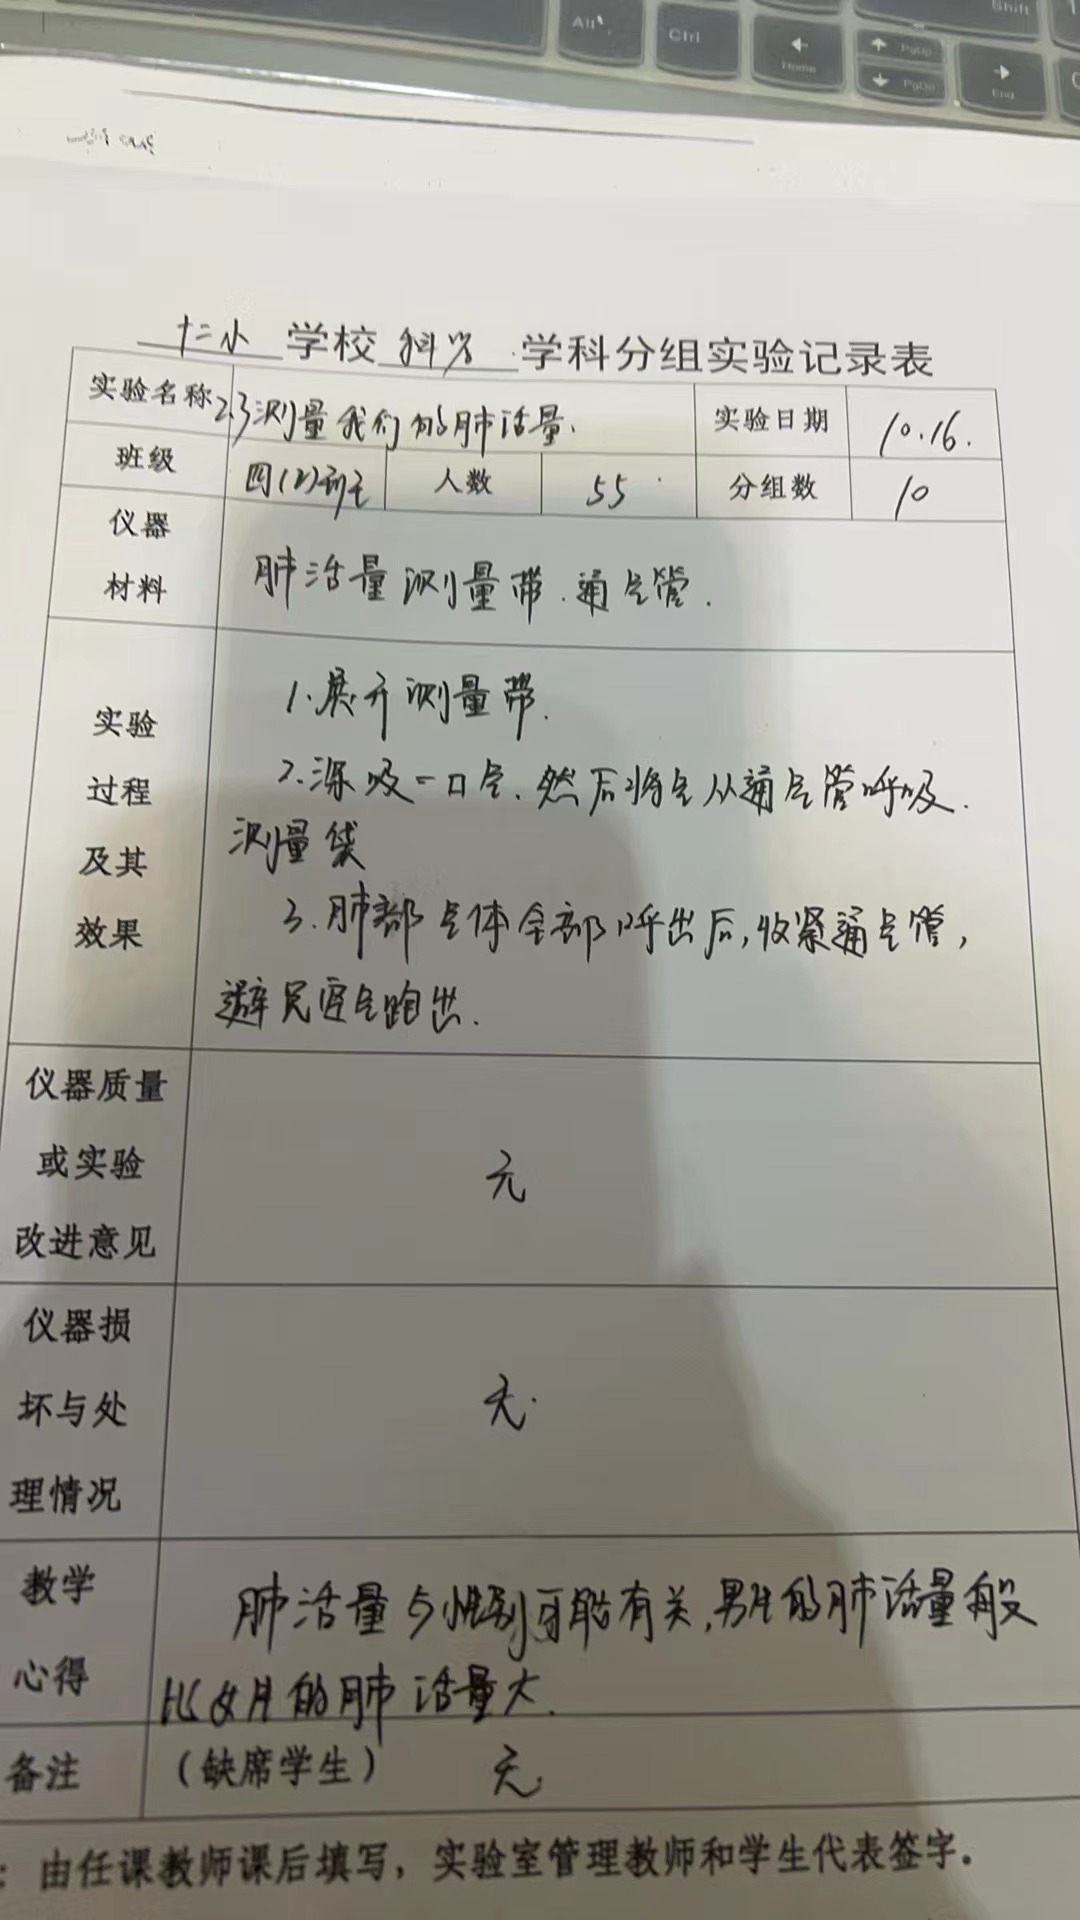 Alt
Ctrl
Home
PgUp
PgDn
End
Shift
十二小 学校 科学 学科分组实验记录表
实验名称 2.3测量我们的肺活量. 实验日期 10.16.
班级 四(2)班 人数 55 分组数 10
仪器
材料
肺活量测量带.通气管.
实验
过程
及其
效果
1.展开测量带.
2.深吸一口气.然后将气从通气管呼吸.
测量袋
3.肺部气体全部呼出后,收紧通气管,
避免空气跑出.
仪器质量
或实验
改进意见
无
仪器损
坏与处
理情况
无.
教学
心得
肺活量与性别年龄有关,男生的肺活量般
比女生的肺活量大.
备注 (缺席学生) 无.
:由任课教师课后填写,实验室管理教师和学生代表签字。